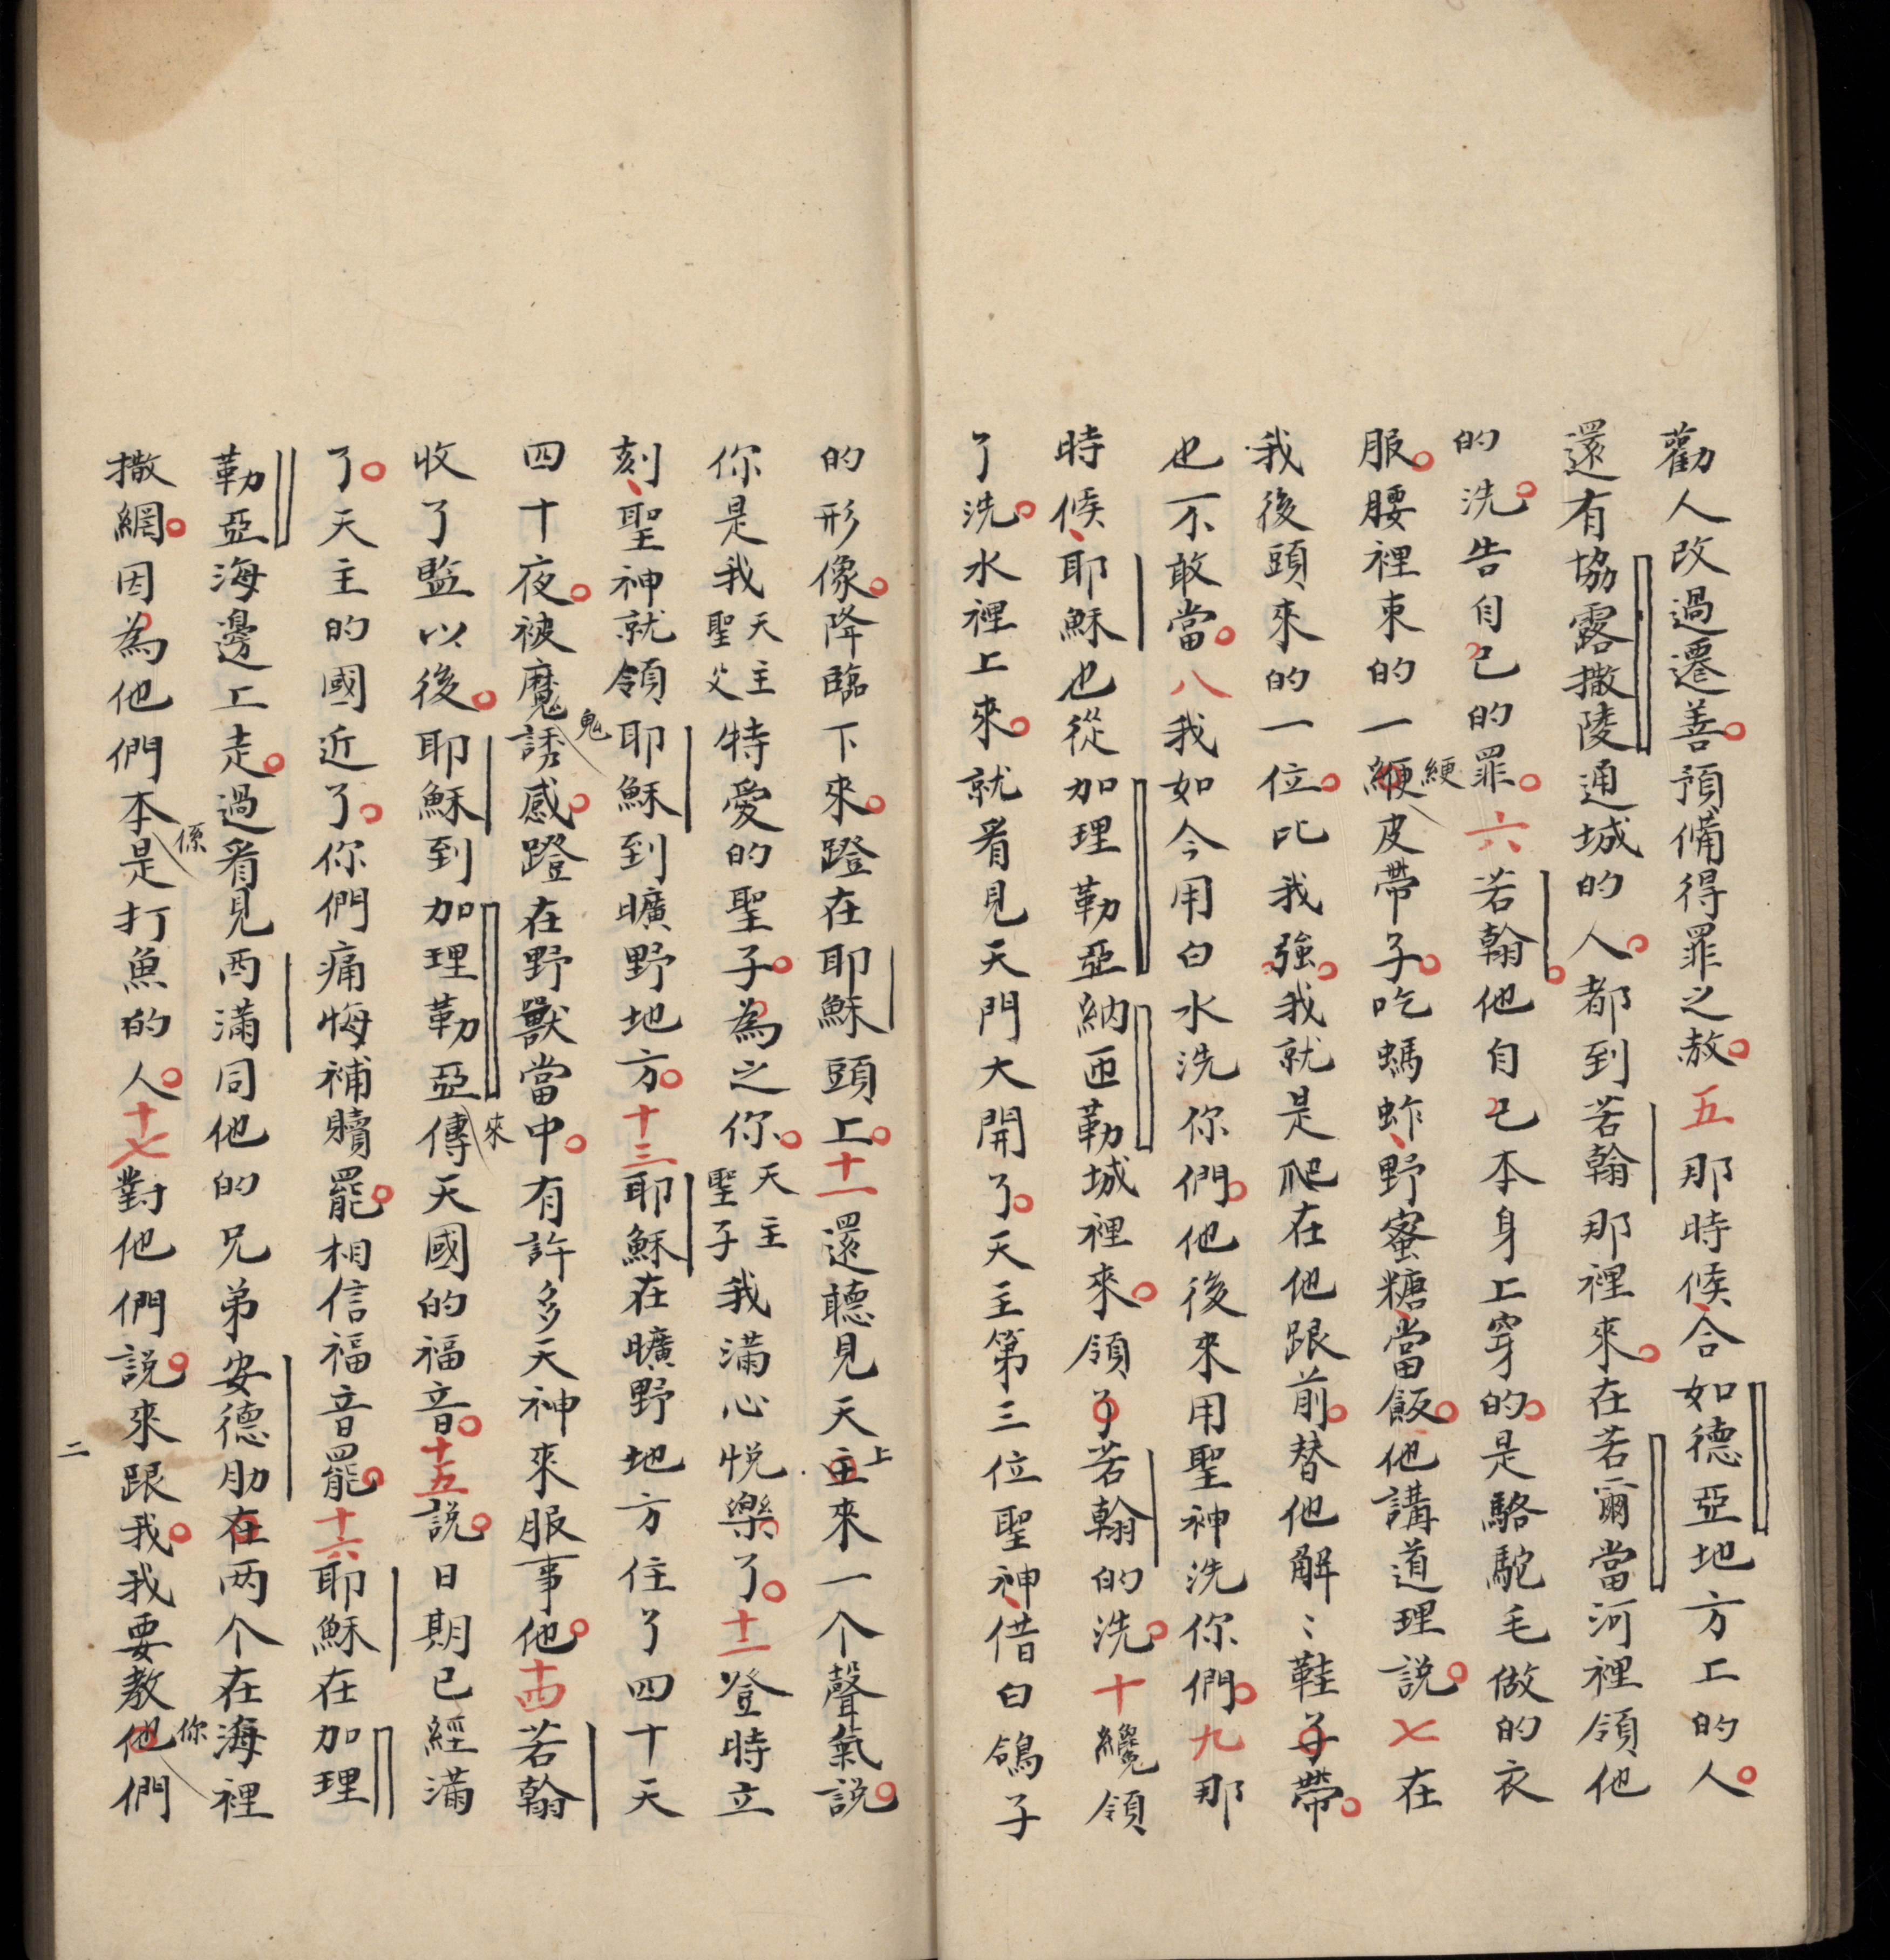 勸人改過遷善。預備得罪之赦。五那時候、合如德亞地方上的人。
還有協露撒陵通城的人。都到若翰那裡來。在若爾當河裡領他
的洗。告自己的罪。六若翰。他自己本身上穿的。是駱駝毛做的衣
服。腰裡束的一綆皮帶子。吃螞蚱、野蜜糖、當飯。他講道理說。七在
綆
我後頭來的一位。比我強。我就是爬在他跟前。替他解〻鞋子帶。
也不敢當。八我如今用白水洗你們。他後來用聖神洗你們。九那
時候、耶穌也從加理勒亞納匝勒城裡來。領了若翰的洗。十纔領
了洗。水裡上來。就看見天門大開了。天主第三位聖神、借白鴿子
的形像。降臨下來。蹬在耶穌頭上。十一還聽見天主來一个聲氣說。
上
你是我天主聖父特愛的聖子。為之你。天主聖子我滿心悅樂了。十二登時立
刻、聖神就領耶穌到曠野地方。十三耶穌在曠野地方住了四十天
四十夜。被魔誘惑。蹬在野獸當中。有許多天神來服事他。十四若翰
鬼
收了監以後。耶穌到加理勒亞傳天國的福音。十五說。日期已經滿
來
了。天主的國近了。你們痛悔補贖罷。相信福音罷。十六耶穌在加理
勒亞海邊上走。過看見西滿同他的兄弟安德肋在两个在海裡
撒網。因為他們本是打魚的人。十七對他們說。來跟我。我要教他們
係
你
二